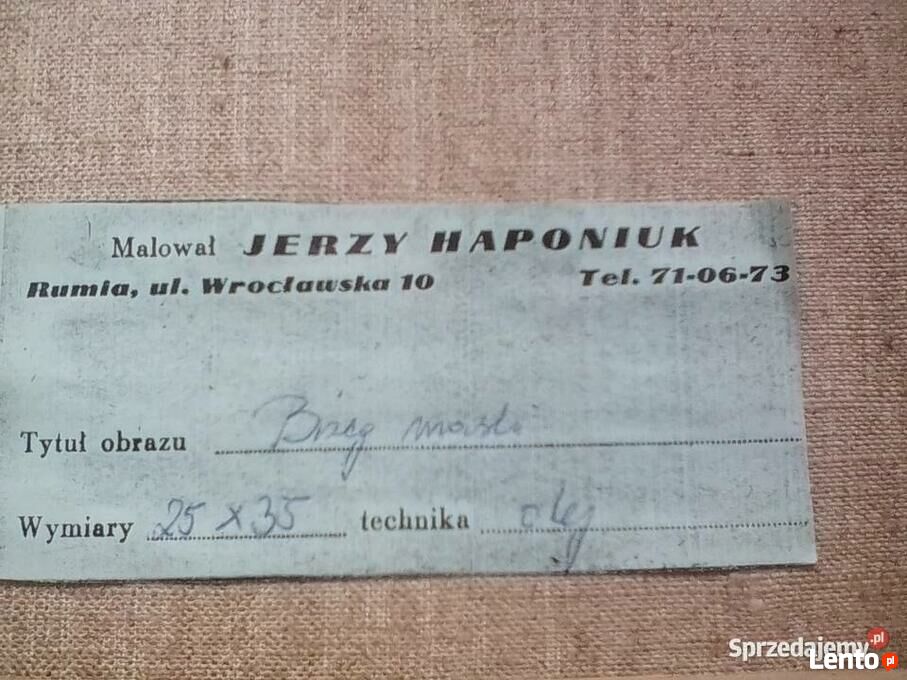 Malował JERZY HAPONIUK
Rumia, ul. Wrocławska 10 Tel. 71-06-73
Tytuł obrazu Brzeg morski
Wymiary 25 x 35 technika olej
Sprzedajemy.pl
Lento.pl